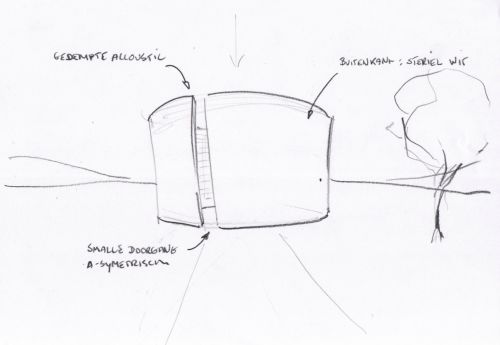 GEDEMPTE ALLOUSTIC
BUITENKANT : STERIEL WIT
SMALLE DOORGANG
A-SYMETRISCH